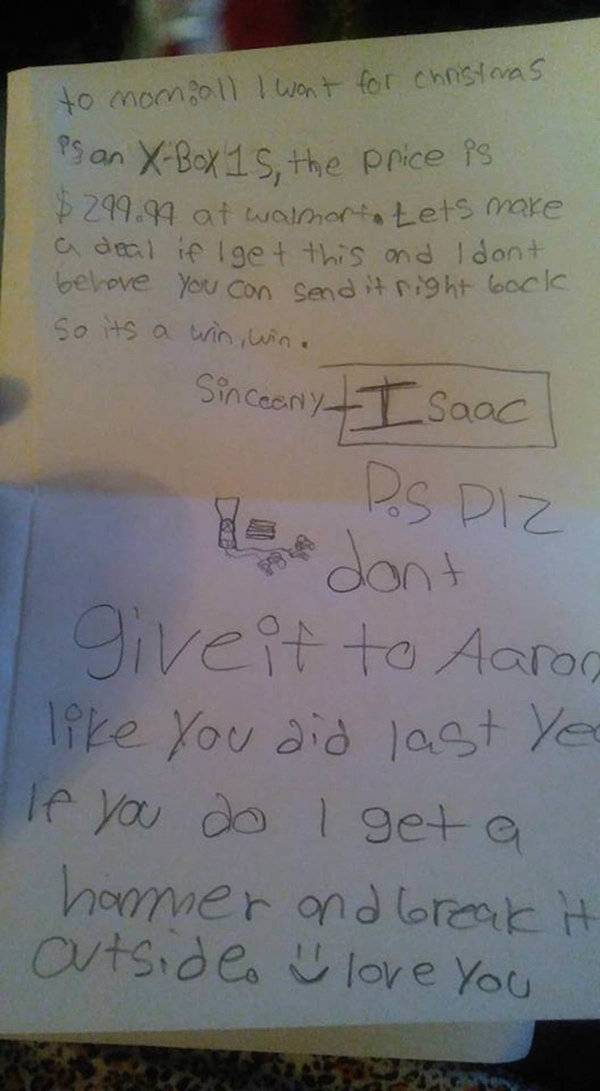 to mom:all I want for christmas
is an X-Box 1 S, the price is
$299.99 at walmart. Lets make
a deal if I get this and I dont
behave you can send it right back
so its a win, win.
Sinceerly + Isaac
P.S Plz
dont
give it to Aaron
like you did last Yea
If you do I get a
hammer and break it
outside. love you